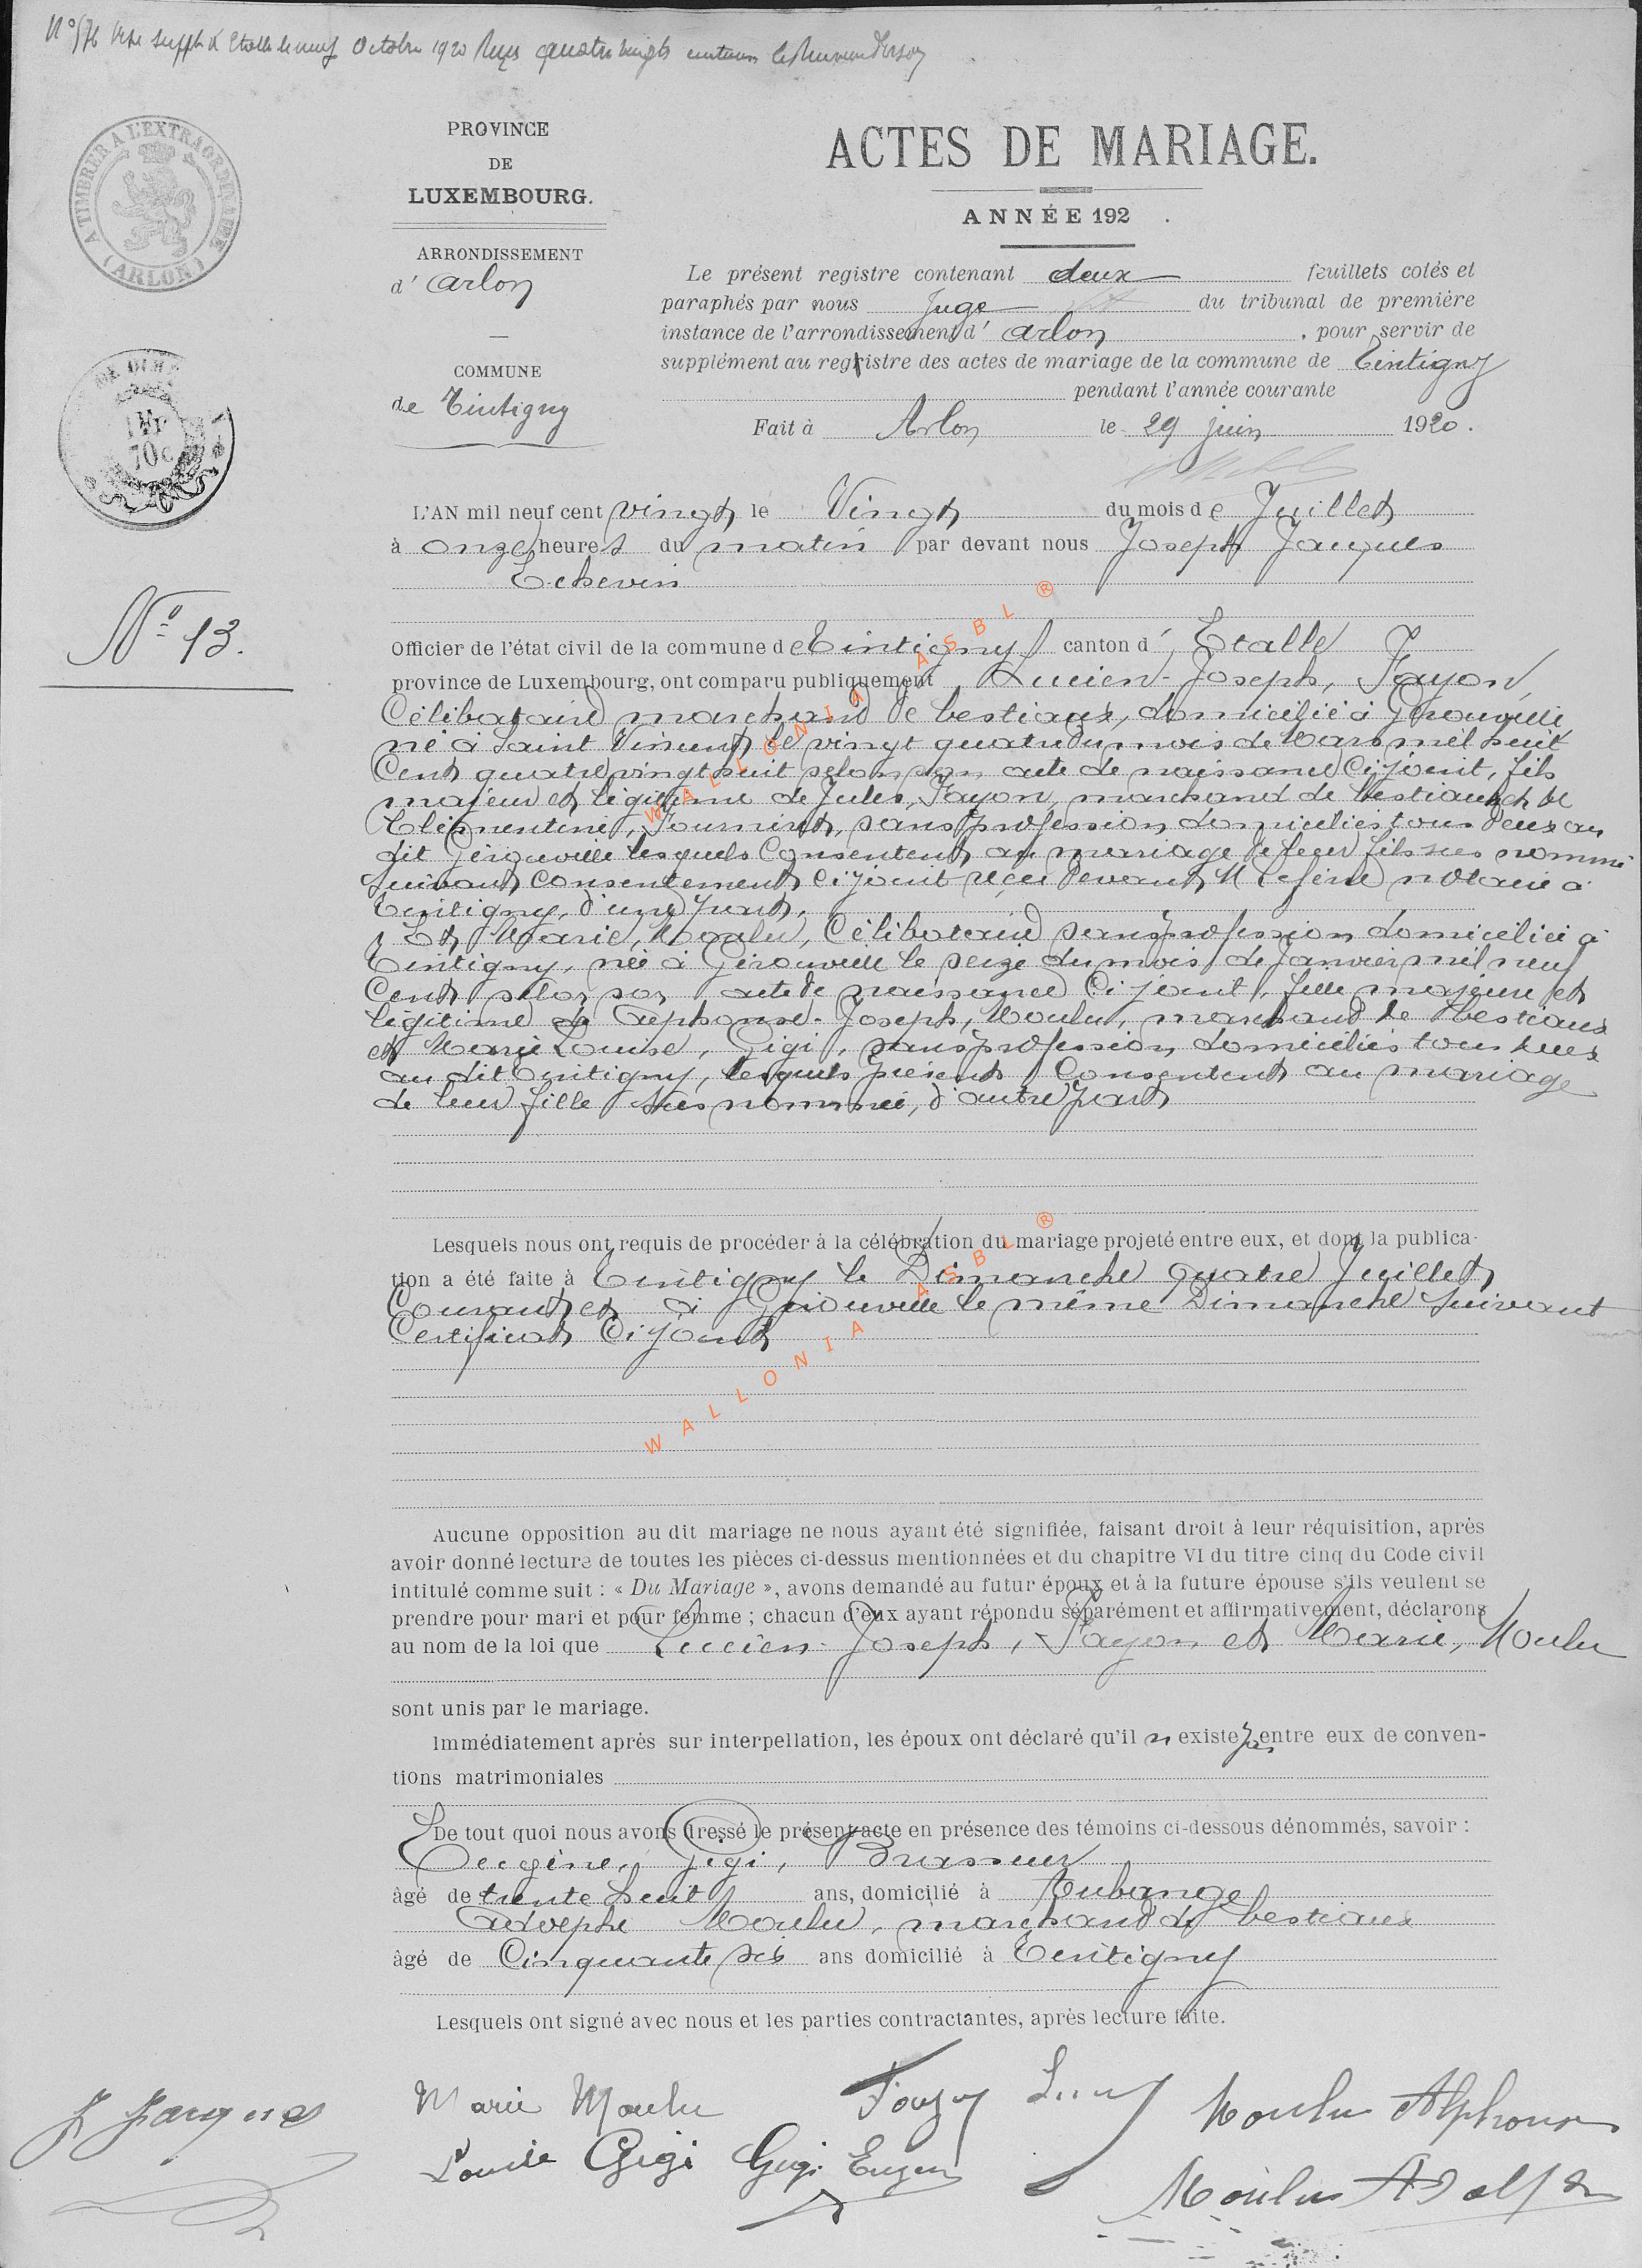 Octobre 1920 Reçu quatre vingts centimes
A TIMBRER A L'EXTRAORDINAIRE
(ARLON)
PROVINCE
DE
LUXEMBOURG.
ARRONDISSEMENT
d' Arlon
COMMUNE
de Tintigny
ACTES DE MARIAGE.
ANNÉE 192 .
Le présent registre contenant deux feuillets cotés et
paraphés par nous Juge du tribunal de première
instance de l'arrondissement d' Arlon , pour servir de
supplément au registre des actes de mariage de la commune de Tintigny
pendant l'année courante
Fait à Arlon le 29 juin 1920.
L'AN mil neuf cent vingt le Vingt du mois de Juillet
à onze heures du matin par devant nous Joseph Jacques
Echevin
No 13.
Officier de l'état civil de la commune de Tintigny canton d' Etalle
province de Luxembourg, ont comparu publiquement Lucien-Joseph, Fayon,
Célibataire marchand de bestiaux, domicilié à Gérouville
né à Saint Vincent le vingt quatre du mois de Mars mil huit
Cent quatre vingt huit selon son acte de naissance Ci joint, fils
majeur et légitime de Jules, Fayon, marchand de bestiaux et de
Clémentine, Fourniret, sans profession domiciliés tous deux au
dit Gérouville lesquels Consentent au mariage de leur fils sus nommé
suivant consentement Ci joint reçu devant notaire à
Tintigny, d'une part.
Et Marie, Moulu, Célibataire sans profession domiciliée à
Tintigny, née à Gérouville le seize du mois de Janvier mil neuf
Cent selon son acte de naissance Ci joint, fille majeure et
légitime de Alphonse-Joseph, Moulu, marchand de bestiaux
et Marie Louise, Gigi, sans profession domiciliés tous deux
au dit Tintigny, lesquels présents Consentent au mariage
de leur fille sus nommée, d'autre part
Lesquels nous ont requis de procéder à la célébration du mariage projeté entre eux, et dont la publica-
tion a été faite à Tintigny le Dimanche quatre Juillet
Courant et à Gérouville le même Dimanche suivant
Certificat Ci joint
WALLONIA ASBL ®
WALLONIA ASBL ®
Aucune opposition au dit mariage ne nous ayant été signifiée, faisant droit à leur réquisition, après
avoir donné lecture de toutes les pièces ci-dessus mentionnées et du chapitre VI du titre cinq du Code civil
intitulé comme suit : « Du Mariage », avons demandé au futur époux et à la future épouse s'ils veulent se
prendre pour mari et pour femme ; chacun d'eux ayant répondu séparément et affirmativement, déclarons
au nom de la loi que Lucien-Joseph, Fayon et Marie, Moulu
sont unis par le mariage.
Immédiatement après sur interpellation, les époux ont déclaré qu'il n existe pas entre eux de conven-
tions matrimoniales
De tout quoi nous avons dressé le présent acte en présence des témoins ci-dessous dénommés, savoir :
Eugène, Gigi, Brasseur
âgé de trente huit ans, domicilié à Aubange
Adolphe Moulu, marchand de bestiaux
âgé de Cinquante six ans domicilié à Tintigny
Lesquels ont signé avec nous et les parties contractantes, après lecture faite.
J Jacques
Marie Moulu
Moulu Alphonse
Louise Gigi Gigi Eugène
Moulu Adolphe